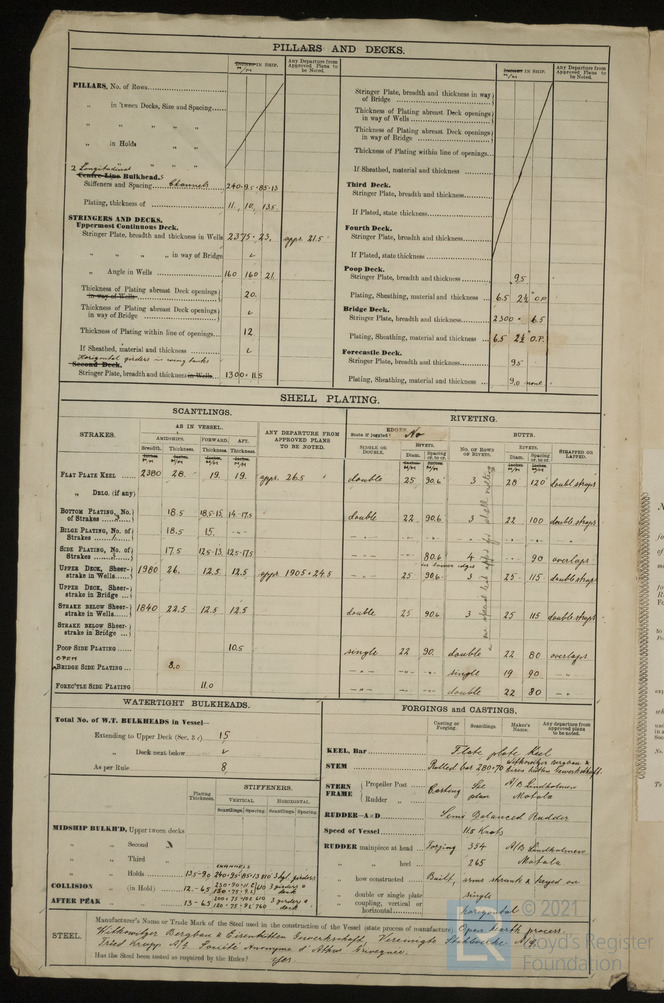 PILLARS AND DECKS.
IN SHIP.
Any Departure from Approved Plans to be Noted.
PILLARS, No. of Rows
„ in 'tween Decks, Size and Spacing
„ „ „ „
„ in Holds „
„ „ „
2 Longitudinal
Centre Line Bulkhead.s
Stiffeners and Spacing Channels 240·9.5·85·13
Plating, thickness of 11, 10, 13.5
STRINGERS AND DECKS.
Uppermost Continuous Deck.
Stringer Plate, breadth and thickness in Wells 2375 · 23. appr. 21.5
„ „ „ „ in way of Bridge
„ Angle in Wells 160 160 21.
Thickness of Plating abreast Deck openings in way of Wells 20.
Thickness of Plating abreast Deck openings in way of Bridge
Thickness of Plating within line of openings 12
If Sheathed, material and thickness
Horizontal girders in wing tanks
Second Deck.
Stringer Plate, breadth and thickness in Wells 1300 · 11.5
IN SHIP.
Any Departure from Approved Plans to be Noted.
Stringer Plate, breadth and thickness in way of Bridge
Thickness of Plating abreast Deck openings in way of Wells
Thickness of Plating abreast Deck openings in way of Bridge
Thickness of Plating within line of openings
If Sheathed, material and thickness
Third Deck.
Stringer Plate, breadth and thickness
If Plated, state thickness
Fourth Deck.
Stringer Plate, breadth and thickness
If Plated, state thickness
Poop Deck.
Stringer Plate, breadth and thickness 9.5
Plating, Sheathing, material and thickness 6.5 2½" O.P.
Bridge Deck.
Stringer Plate, breadth and thickness 2300 · 6.5
Plating, Sheathing, material and thickness 6.5 2½" O.P.
Forecastle Deck.
Stringer Plate, breadth and thickness 9.5
Plating, Sheathing, material and thickness 9.0 none
SHELL PLATING.
SCANTLINGS.
RIVETING.
STRAKES.
AS IN VESSEL.
AMIDSHIPS. FORWARD. AFT.
Breadth. Thickness. Thickness. Thickness.
ANY DEPARTURE FROM APPROVED PLANS TO BE NOTED.
EDGES.
State if joggled? No
SINGLE OR DOUBLE.
RIVETS.
Diam. Spacing cr. to cr.
BUTTS.
NO. OF ROWS OF RIVETS.
RIVETS.
Diam. Spacing cr. to cr.
STRAPPED OR LAPPED.
FLAT PLATE KEEL 2380 28. 19. 19. appr. 26.5 double 25 90.6 3 28 120 doubl straps
„ DBLG. (if any)
BOTTOM PLATING, No. of Strakes 18.5 18.5-13. 14-17.5 double 22 90.6 3 22 100 double straps
BILGE PLATING, No. of Strakes 18.5 15.
SIDE PLATING, No. of Strakes 17.5 12.5-13. 12.5-17.5 80.6 4 90 overlaps
in lower edges
UPPER DECK, Sheerstrake in Wells 1980 26. 12.5 12.5 appr 1905 · 24.5 25 90.6 3 25 115 double straps
UPPER DECK, Sheerstrake in Bridge
STRAKE BELOW Sheerstrake in Wells 1840 22.5 12.5 12.5 double 25 90.6 3 25 115 double straps
STRAKE BELOW Sheerstrake in Bridge
POOP SIDE PLATING 10.5 single 22 90. double 22 80 overlaps
OPEN
BRIDGE SIDE PLATING 8.0 single 19 90
FOREC'TLE SIDE PLATING 11.0 double 22 80
WATERTIGHT BULKHEADS.
Total No. of W.T. BULKHEADS in Vessel—
Extending to Upper Deck (Sec. 3 c) 15
„ Deck next below
As per Rule 8
Plating Thickness.
STIFFENERS.
VERTICAL. HORIZONTAL.
Scantlings. Spacing. Scantlings. Spacing.
MIDSHIP BULKH'D, Upper tween decks
„ „ Second „
„ „ Third „
CHANNELS
„ „ Holds 13.5-9.0 240·9.5·85·13 810 3 hzl. girders
COLLISION „ (in Hold) 12.-6.5 610 3 girders & deck
AFTER PEAK „ „ 13-6.5 3 girders & deck
FORGINGS and CASTINGS.
Casting or Forging. Scantlings. Maker's Name. Any departure from approved plans to be noted.
KEEL, Bar Flate plate Keel
STEM Rolled bar 280 · 70 Witkowitzer Bergbau & Eisenhütten Gewerkschaft.
STERN FRAME
Propeller Post
Rudder „
Casting See plan A/B Lindholmen Motala
RUDDER—A × D Semi Balanced Rudder
Speed of Vessel 11.5 Knots
RUDDER mainpiece at head Forging 354 A/B Lindholmen
„ „ heel 265 Motala
„ how constructed Built, arms shrunk & keyed on
„ double or single plate single
„ coupling, vertical or horizontal horizontal
STEEL.
Manufacturer's Name or Trade Mark of the Steel used in the construction of the Vessel (state process of manufacture) Open hearth process.
Witkowitzer Bergbau & Eisenhütten Gewerkschaft, Vereinigte Stahlwerke A/G.
Fried Krupp A/G. Société Anonyme d'Athus Grivegnee.
Has the Steel been tested as required by the Rules? Yes.
© 2021
Lloyd's Register
Foundation